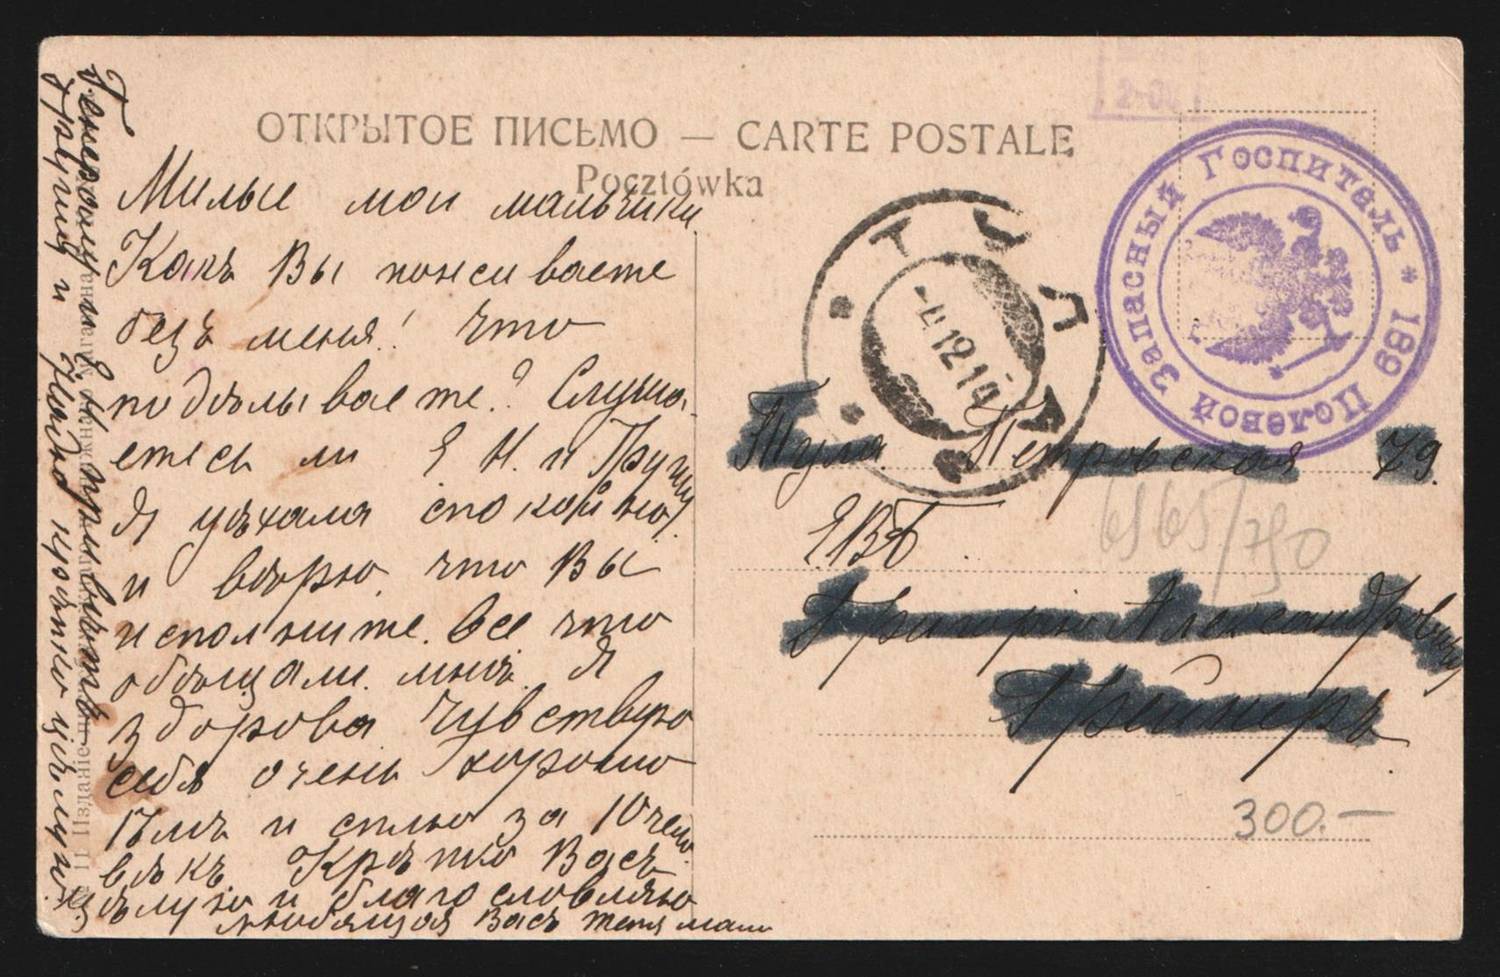 ОТКРЫТОЕ ПИСЬМО — CARTE POSTALE
Pocztówka
Милые мои мальчики
Какъ Вы поживаете
безъ меня! Что
подѣлываете? Слуша-
етесь ли Е Н. и Грушу
Я уѣхала спокойно,
и вѣрю, что Вы
исполните все что
обѣщали мнѣ. Я
здорова чувствую
себя очень хорошо
ѣмъ и сплю за 10 чело-
вѣкъ Крѣпко Васъ
цѣлую и благословляю
любящая Васъ мама
и Е. Н. привѣтъ
Грушу и Надю крѣпко цѣлую.
Изданіе
189 Полевой Запасный Госпиталь *
ТУЛА
12 14
Тула. Петровская 79.
ЕВБ
Григорію Александровичу
Грейнеръ
6965/750
300.—